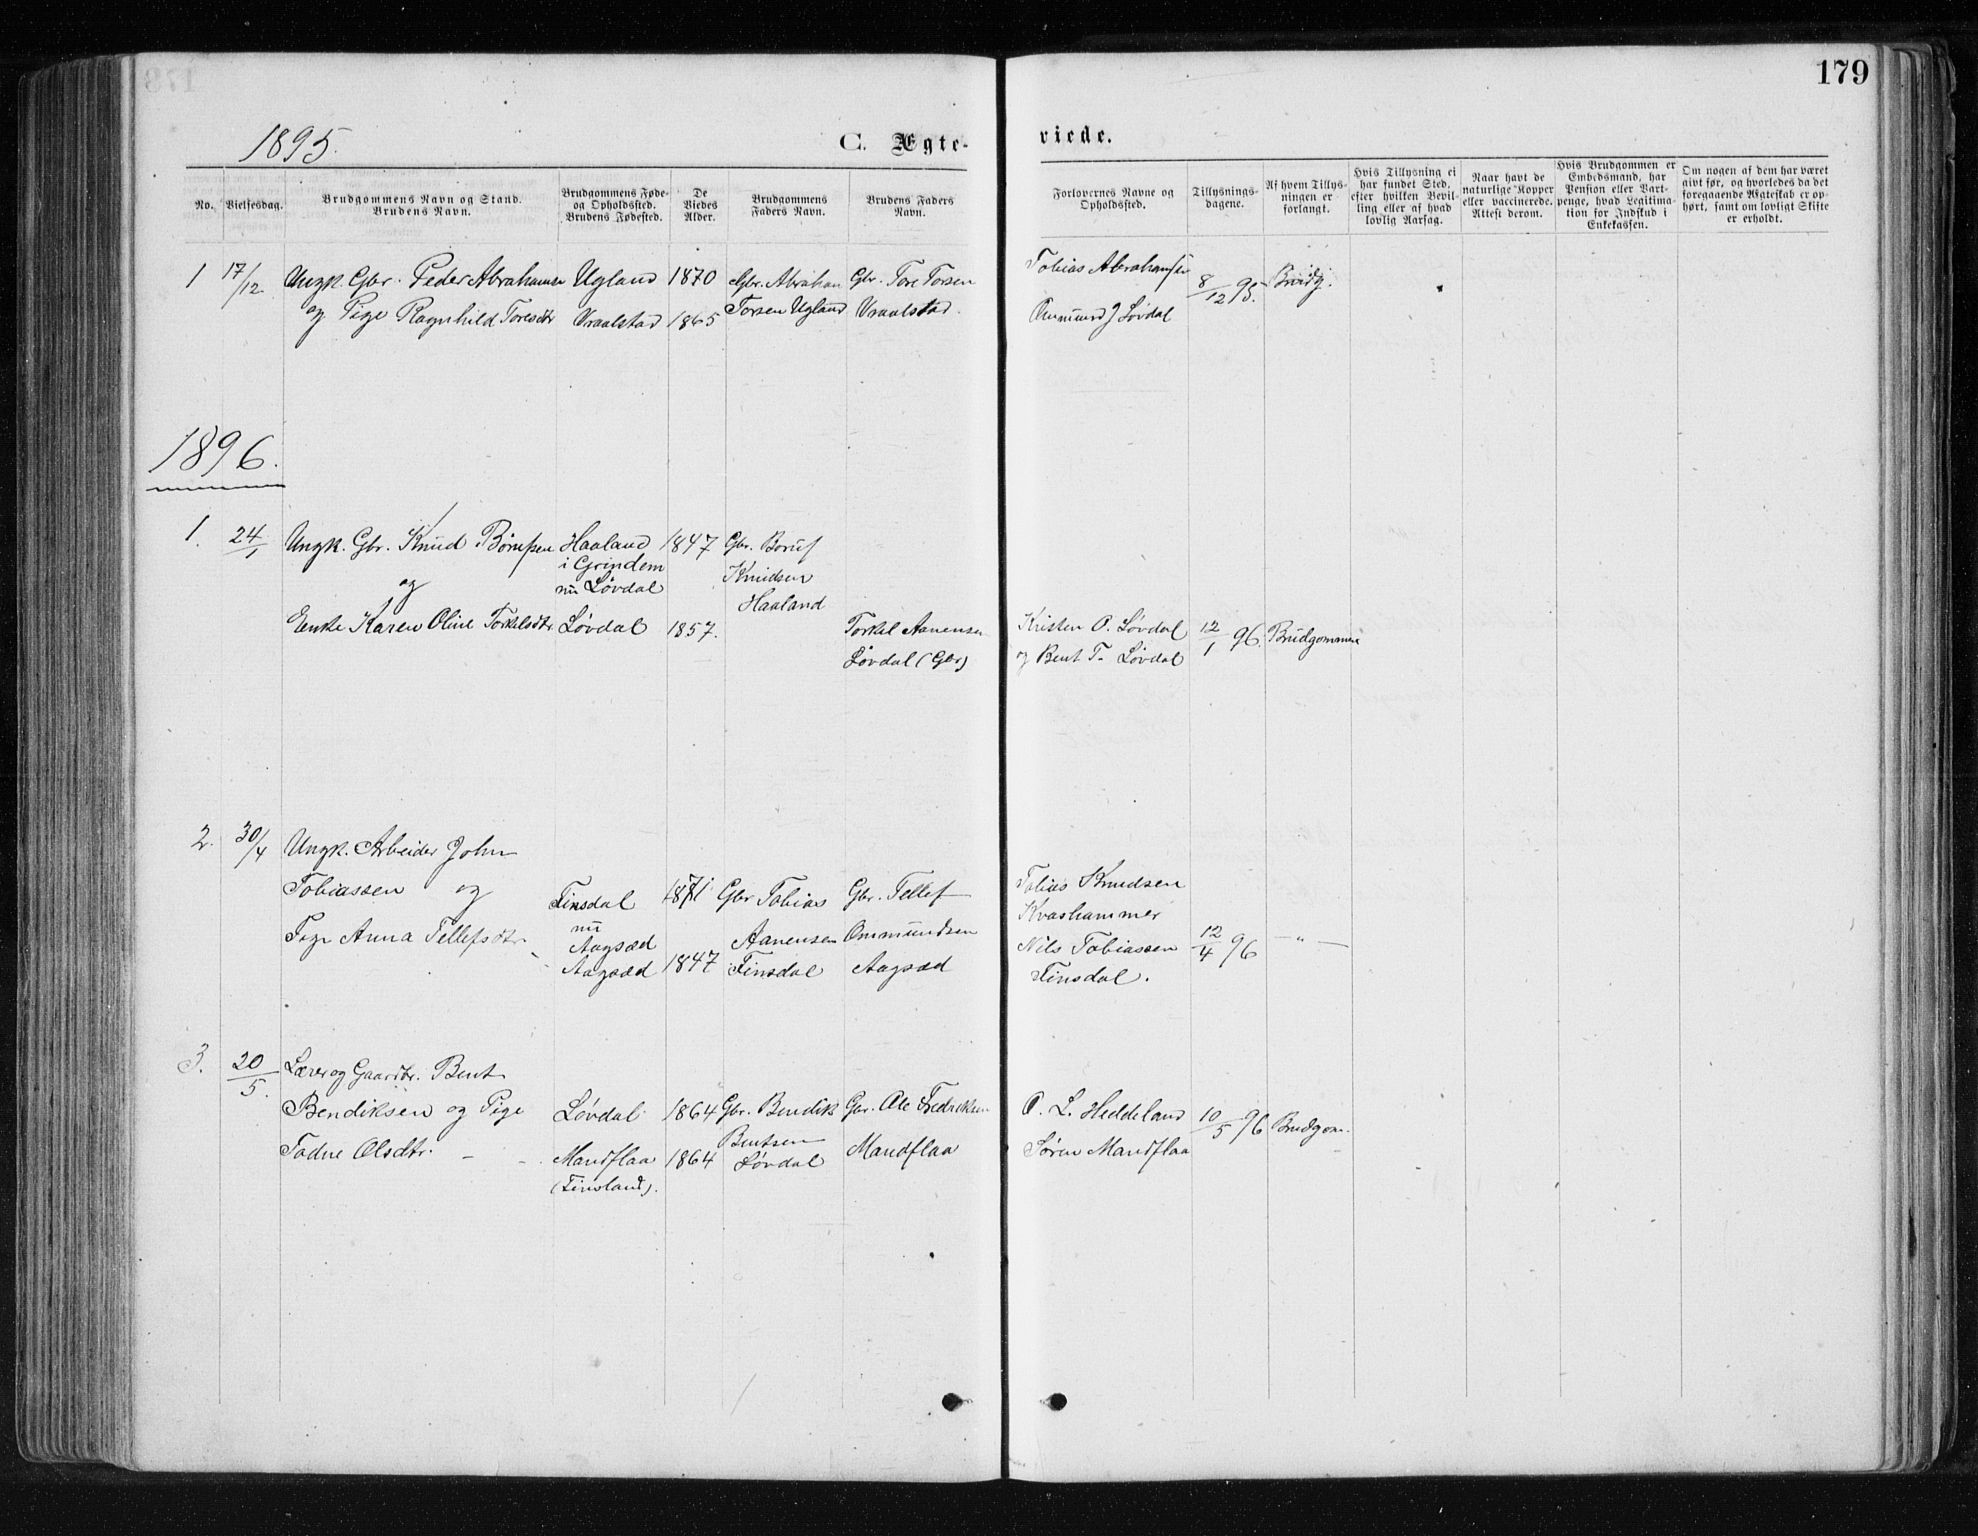 179
1895.
C. Ægte-
viede.
No.
Vielsesdag.
Brudgommens Navn og Stand.
Brudens Navn.
Brudgommens Føde-
og Opholdssted.
Brudens Fødested.
De
Viedes
Alder.
Brudgommens
Faders Navn.
Brudens Faders
Navn.
Forlovernes Navne og
Opholdssted.
Tillysnings-
dagene.
Af hvem Tillys-
ningen er
forlangt.
Hvis Tillysning ei
har fundet Sted,
efter hvilken Bevil-
ling eller af hvad
lovlig Aarsag.
Naar havt de
naturlige Kopper
eller vaccinerede.
Attest derom.
Hvis Brudgommen er
Embedsmand, har
Pension eller Vart-
penge, hvad Legitima-
tion for Indskud i
Enkekassen.
Om nogen af dem har været
givt før, og hvorledes da det
foregaaende Ægteskab er op-
hørt, samt om lovligt Skifte
er erholdt.
1 17/12 Ungk. Gbr. Peder Abrahamsen Ugland 1870 Gbr. Abraham Gbr. Tore Torsen
og Pige Ragnhild Toresdtr Vraalstad 1865 Torsen Ugland Vraalstad.
Tobias Abrahamsen 8/12 95. Brudg.
Ommund J Løvdal
1896.
1. 24/1 Ungk. Gbr. Knud Børufsen Haaland 1847 Gbr. Boruf
i Grindem Knudsen
og nu Løvdal Haaland
Enke Karen Oline Torkelsdtr. Løvdal 1857. Torkel Aanensen
Løvdal (Gbr)
Kristen O. Løvdal 12/1 96. Brudgommen
og Bent T. Løvdal
2. 30/4 Ungk. Arbeider John
Tobiassen og Finsdal 1871 Gbr Tobias Gbr. Tellef
nu
Pige Anna Tellefsdtr. Aagsæd Aanensen Ommundsen
Aagsæd 1847 Finsdal Aagsæd
Tobias Knudsen
Kvashammer
Nils Tobiassen 12/4 96 — " —
Finsdal.
3. 20/5. Lærer og Gaardbr. Bent
Bendiksen og Pige Løvdal 1864 Gbr. Bendik Gbr. Ole Fredriksen
Bentsen
Tadne Olsdtr. - - Mandflaa 1864 Løvdal Mandflaa
(Finsland).
O. L. Heddeland 10/5 96 Brudgom.
Søren Mandflaa